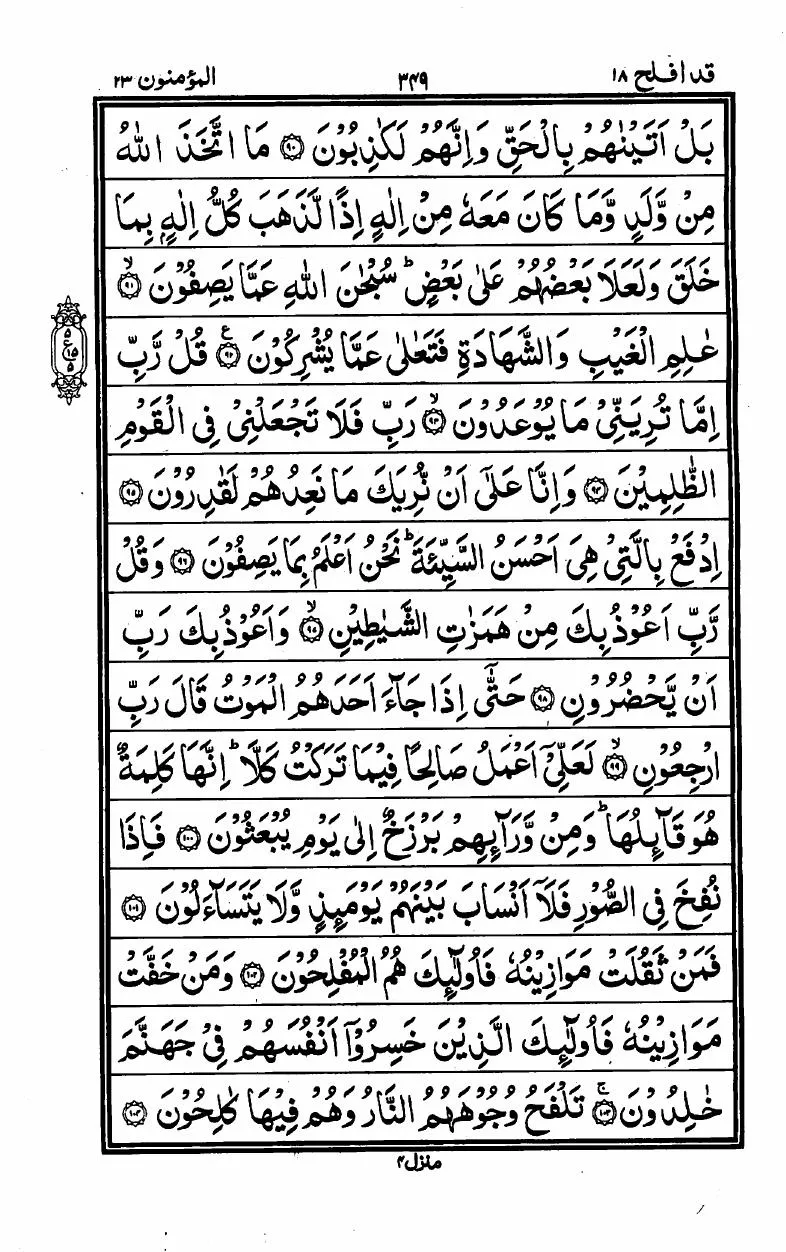 قد افلح ١٨
٣٤٩
المؤمنون ٢٣
بَلْ اَتَيْنٰهُمْ بِالْحَقِّ وَاِنَّهُمْ لَكٰذِبُوْنَ ۝٩٠ مَا اتَّخَذَ اللّٰهُ
مِنْ وَّلَدٍ وَّمَا كَانَ مَعَهٗ مِنْ اِلٰهٍ اِذًا لَّذَهَبَ كُلُّ اِلٰهٍۭ بِمَا
خَلَقَ وَلَعَلَا بَعْضُهُمْ عَلٰى بَعْضٍ ؕ سُبْحٰنَ اللّٰهِ عَمَّا يَصِفُوْنَ ۙ۝٩١
عٰلِمِ الْغَيْبِ وَالشَّهَادَةِ فَتَعٰلٰى عَمَّا يُشْرِكُوْنَ ۝٩٢ ع قُلْ رَّبِّ
٥
ع ١٥
٥
اِمَّا تُرِيَنِّىْ مَا يُوْعَدُوْنَ ۙ۝٩٣ رَبِّ فَلَا تَجْعَلْنِىْ فِى الْقَوْمِ
الظّٰلِمِيْنَ ۝٩٤ وَاِنَّا عَلٰٓى اَنْ نُّرِيَكَ مَا نَعِدُهُمْ لَقٰدِرُوْنَ ۝٩٥
اِدْفَعْ بِالَّتِىْ هِىَ اَحْسَنُ السَّيِّئَةَ ؕ نَحْنُ اَعْلَمُ بِمَا يَصِفُوْنَ ۝٩٦ وَقُلْ
رَّبِّ اَعُوْذُ بِكَ مِنْ هَمَزٰتِ الشَّيٰطِيْنِ ۙ۝٩٧ وَاَعُوْذُ بِكَ رَبِّ
اَنْ يَّحْضُرُوْنِ ۝٩٨ حَتّٰٓى اِذَا جَآءَ اَحَدَهُمُ الْمَوْتُ قَالَ رَبِّ
ارْجِعُوْنِ ۙ۝٩٩ لَعَلِّىْٓ اَعْمَلُ صَالِحًا فِيْمَا تَرَكْتُ كَلَّا ؕ اِنَّهَا كَلِمَةٌ
هُوَ قَآئِلُهَا ؕ وَمِنْ وَّرَآئِهِمْ بَرْزَخٌ اِلٰى يَوْمِ يُبْعَثُوْنَ ۝١٠٠ فَاِذَا
نُفِخَ فِى الصُّوْرِ فَلَاۤ اَنْسَابَ بَيْنَهُمْ يَوْمَئِذٍ وَّلَا يَتَسَآءَلُوْنَ ۝١٠١
فَمَنْ ثَقُلَتْ مَوَازِيْنُهٗ فَاُولٰٓئِكَ هُمُ الْمُفْلِحُوْنَ ۝١٠٢ وَمَنْ خَفَّتْ
مَوَازِيْنُهٗ فَاُولٰٓئِكَ الَّذِيْنَ خَسِرُوْٓا اَنْفُسَهُمْ فِىْ جَهَنَّمَ
خٰلِدُوْنَ ۚ۝١٠٣ تَلْفَحُ وُجُوْهَهُمُ النَّارُ وَهُمْ فِيْهَا كٰلِحُوْنَ ۝١٠٤
منزل ٤